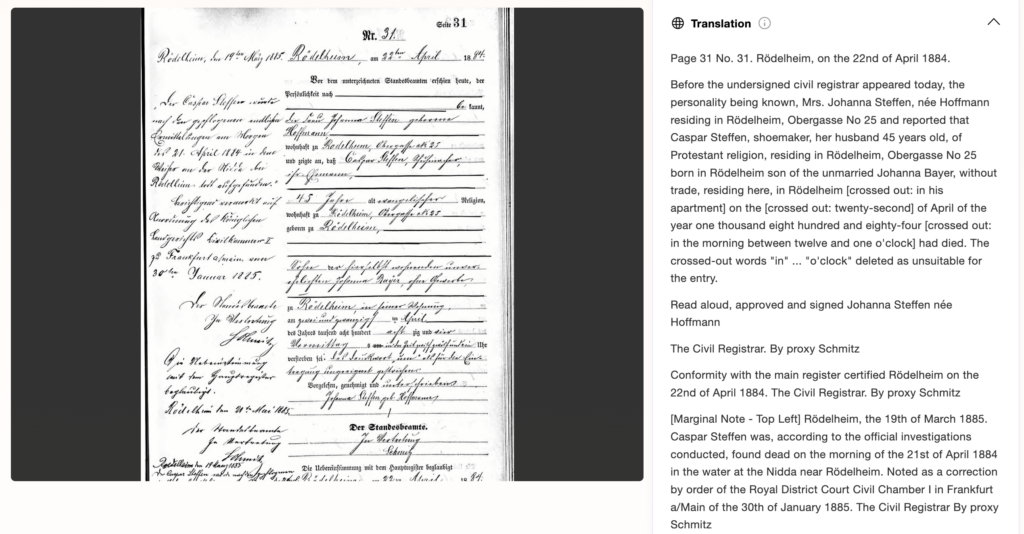 Seite 31
Nr. 31.
Rödelheim, den 19ten März 1885.
Rödelheim, am 22ten April 1884.
Vor dem unterzeichneten Standesbeamten erschien heute, der
Persönlichkeit nach
kannt,
der Frau Johanna Steffen geborene
Hoffmann
wohnhaft zu Rödelheim, Obergasse No 25
und zeigte an, daß Caspar Steffen, Schuhmacher,
ihr Ehemann,
45 Jahre alt evangelischer Religion,
wohnhaft zu Rödelheim, Obergasse No 25
geboren zu Rödelheim,
Sohn der hierselbst wohnenden unver-
ehelichten Johanna Bayer ohne Gewerbe
zu Rödelheim, in seiner Wohnung
am zwei und zwanzig April
des Jahres tausend acht hundert acht zig und vier
Uhr
verstorben sei
Vorgelesen, genehmigt und unterschrieben
Johanna Steffen geb. Hoffmann
Der Standesbeamte.
In Vertretung
Schmitz
Die Uebereinstimmung mit dem Hauptregister beglaubigt
Rödelheim am 22ten April 1884.
Der Caspar Steffen wurde
nach den gepflogenen amtlichen
Ermittelungen am Morgen
des 21. April 1884 in dem
Wasser an der Nidda bei
Rödelheim todt aufgefunden.
Berichtigend vermerkt auf
Anordnung des Königlichen
Landgerichts Civilkammer I
zu Frankfurt a/Main vom
30ten Januar 1885.
Der Standesbeamte
In Vertretung
Schmitz
mit dem Hauptregister
beglaubigt.
Rödelheim den
Der Standesbeamte
In Vertretung
Schmitz
Rödelheim den 19 März 1885
Translation
Page 31 No. 31. Rödelheim, on the 22nd of April 1884.
Before the undersigned civil registrar appeared today, the
personality being known, Mrs. Johanna Steffen, née Hoffmann
residing in Rödelheim, Obergasse No 25 and reported that
Caspar Steffen, shoemaker, her husband 45 years old, of
Protestant religion, residing in Rödelheim, Obergasse No 25
born in Rödelheim son of the unmarried Johanna Bayer, without
trade, residing here, in Rödelheim [crossed out: in his
apartment] on the [crossed out: twenty-second] of April of the
year one thousand eight hundred and eighty-four [crossed out:
in the morning between twelve and one o'clock] had died. The
crossed-out words "in" ... "o'clock" deleted as unsuitable for
the entry.
Read aloud, approved and signed Johanna Steffen née
Hoffmann
The Civil Registrar. By proxy Schmitz
Conformity with the main register certified Rödelheim on the
22nd of April 1884. The Civil Registrar. By proxy Schmitz
[Marginal Note - Top Left] Rödelheim, the 19th of March 1885.
Caspar Steffen was, according to the official investigations
conducted, found dead on the morning of the 21st of April 1884
in the water at the Nidda near Rödelheim. Noted as a correction
by order of the Royal District Court Civil Chamber I in Frankfurt
a/Main of the 30th of January 1885. The Civil Registrar By proxy
Schmitz